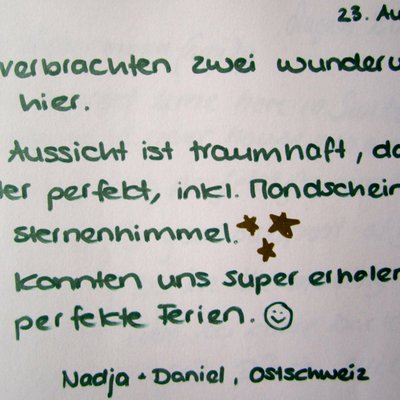 23. Au
verbrachten zwei wunderv
hier.
Aussicht ist traumhaft, da
der perfekt, inkl. Mondschein
sternenhimmel.
konnten uns super erholen
perfekte Ferien.
Nadja + Daniel, Ostschweiz